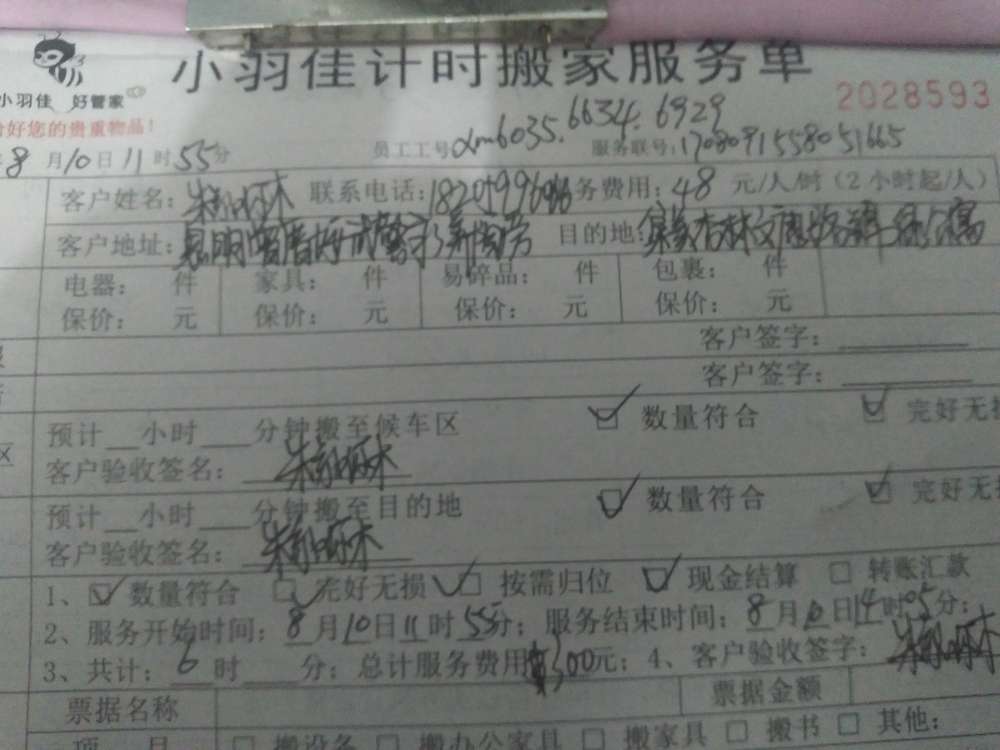 小羽佳计时搬家服务单
小羽佳 好管家
2028593
好您的贵重物品!
8月10日11时55分 员工工号xm6035.6634.6929 服务联号:1708091558051665
客户姓名: 联系电话: 务费用:48元/人/时(2小时起/人)
客户地址: 目的地:
电器: 件 家具: 件 易碎品: 件 包裹: 件
保价: 元 保价: 元 保价: 元 保价: 元
客户签字:
客户签字:
预计__小时___分钟搬至候车区 数量符合 完好无损
区
客户验收签名:
预计__小时___分钟搬至目的地 数量符合 完好无
客户验收签名:
1、数量符合 完好无损 按需归位 现金结算 转账汇款
2、服务开始时间:8月10日11时55分;服务结束时间:8月10日14时05分;
3、共计:6时 分;总计服务费用 300元;4、客户验收签字:
票据名称 票据金额
项 目 搬设备 搬办公家具 搬家具 搬书 其他: